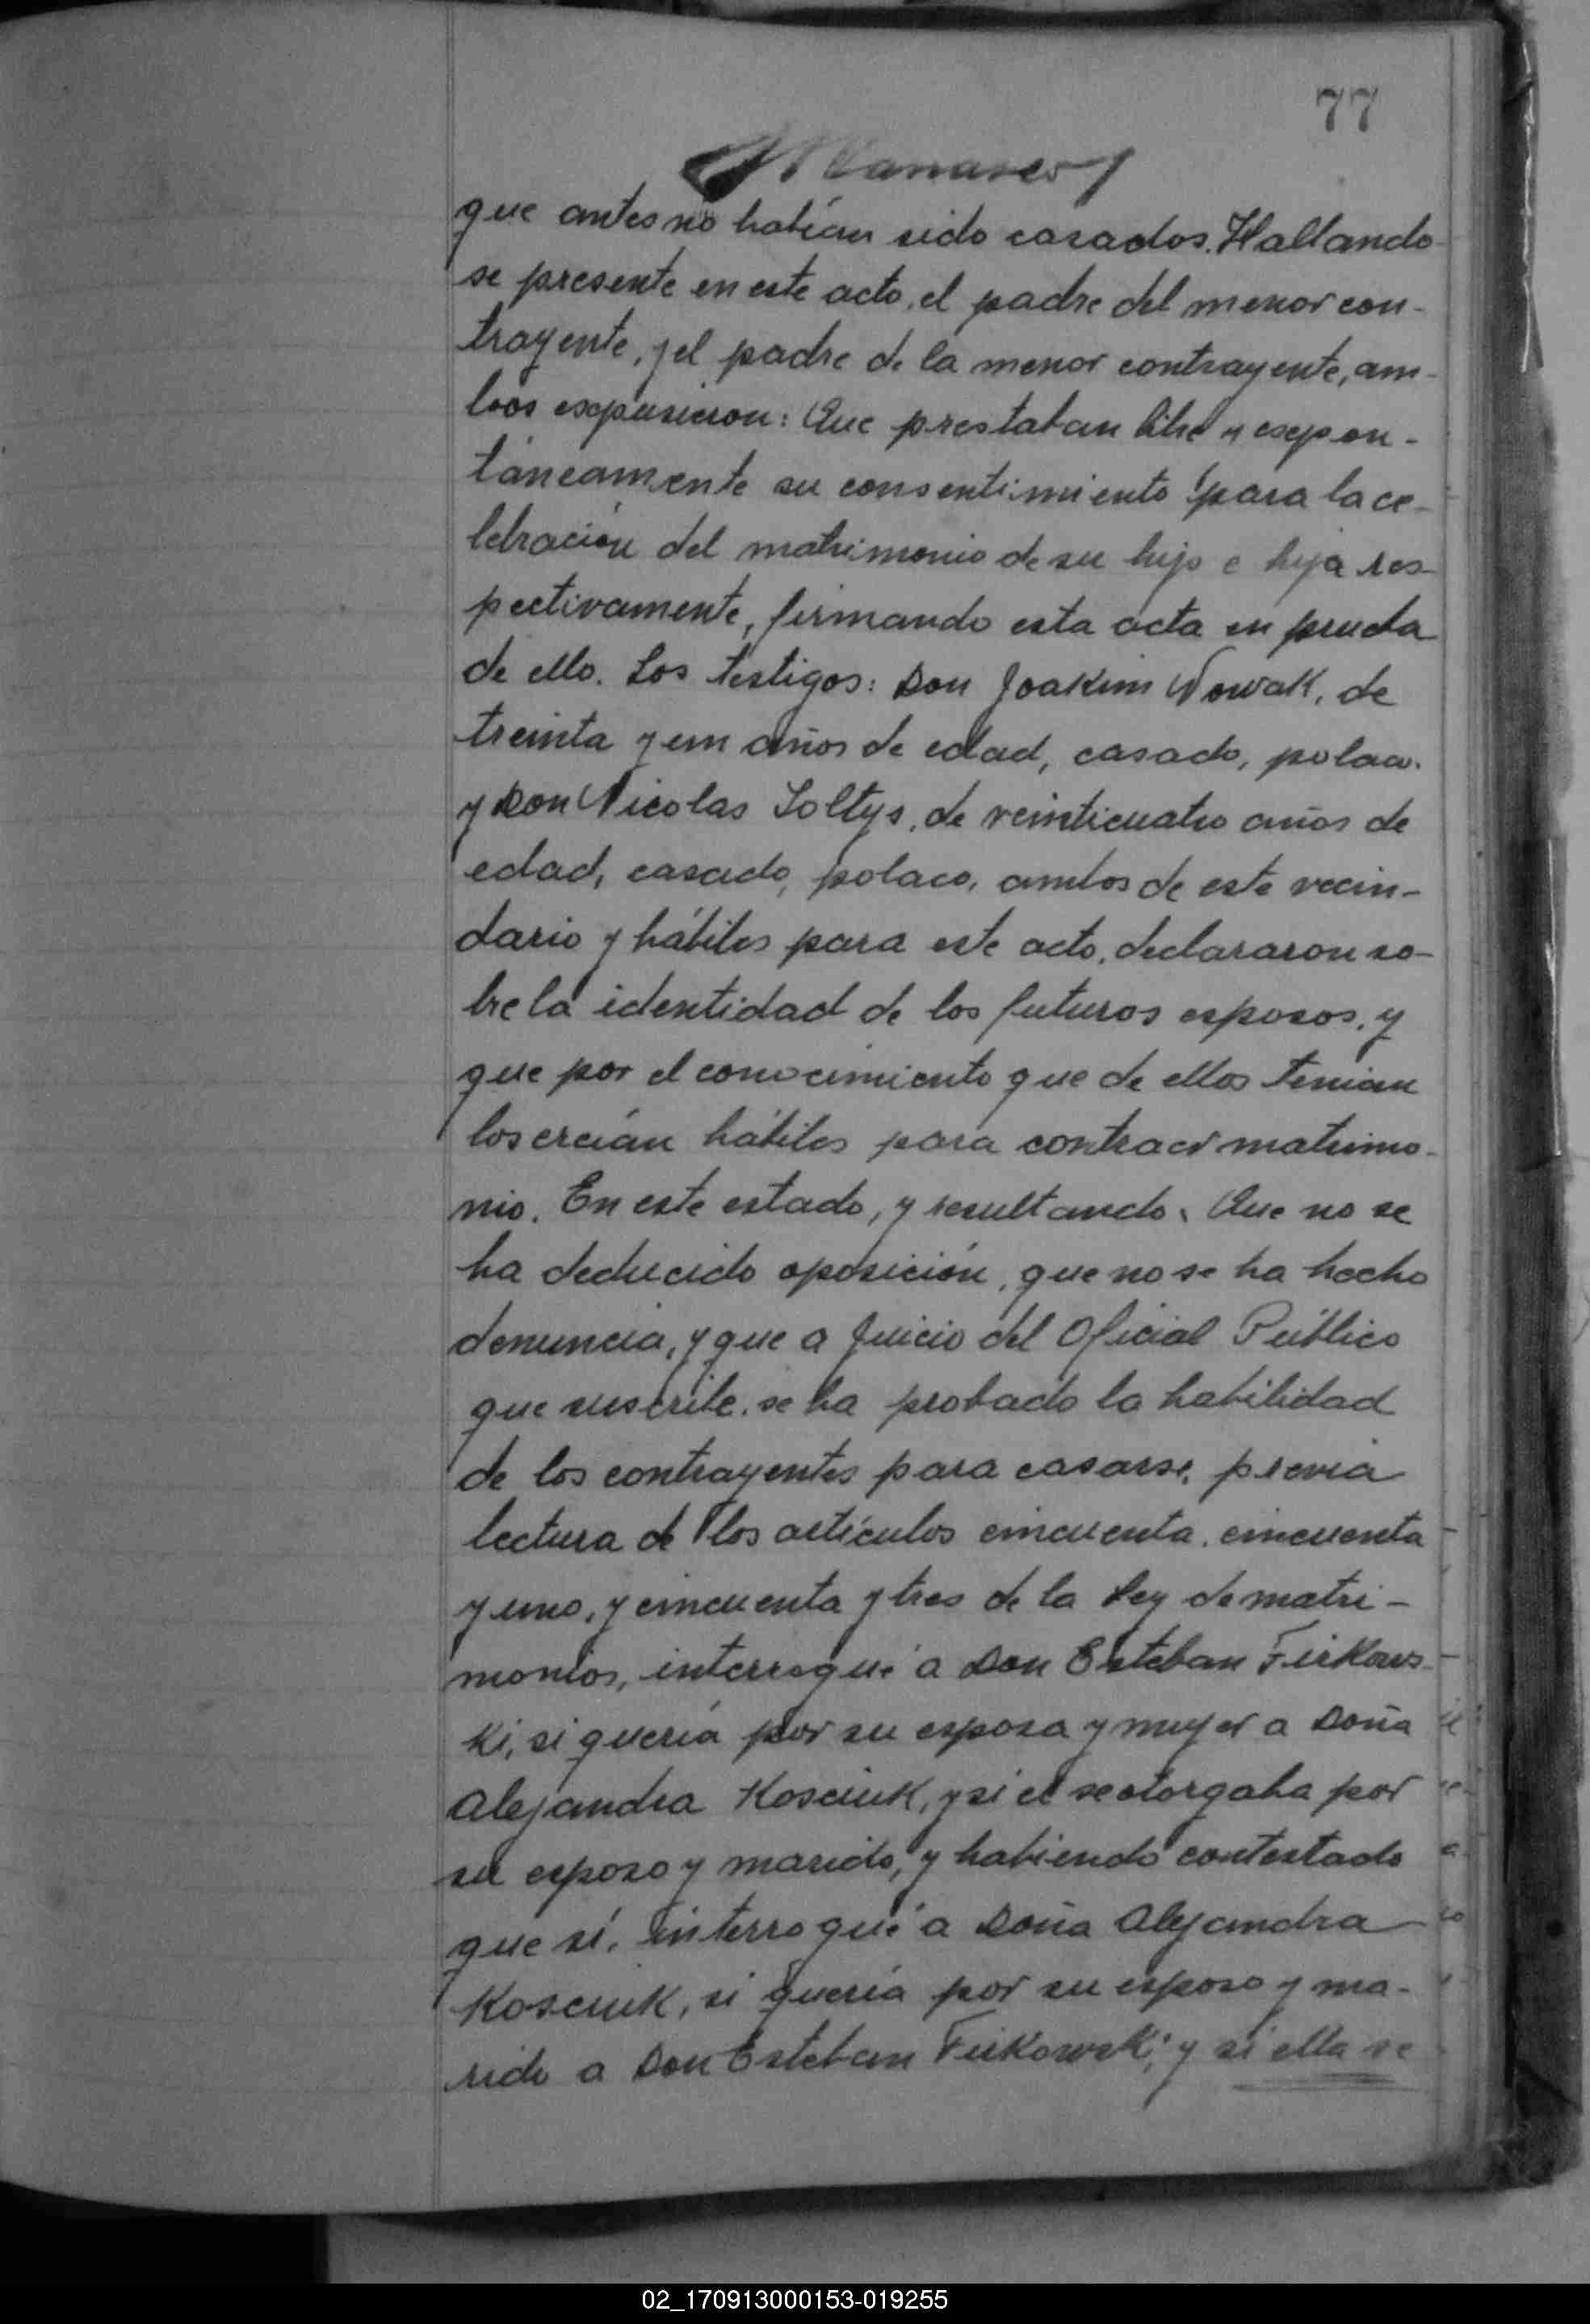 77
que antes no habían sido casados. Hallando
se presente en este acto, el padre del menor con-
trayente, y el padre de la menor contrayente, am-
bos expusieron: Que prestaban libre y espon-
táneamente su consentimiento para la ce-
lebración del matrimonio de su hijo e hija res-
pectivamente, firmando esta acta en prueba
de ello. Los testigos: Don Joakim Nowak, de
treinta y un años de edad, casado, polaco.
y Don Nicolas Soltys, de veinticuatro años de
edad, casado, polaco, ambos de este vecin-
dario y hábiles para este acto, declararon so-
bre la identidad de los futuros esposos, y
que por el conocimiento que de ellos tenian
los creían hábiles para contraer matrimo-
nio. En este estado, y resultando: Que no se
ha deducido oposición, que no se ha hecho
denuncia, y que a juicio del Oficial Público
que suscribe, se ha probado la habilidad
de los contrayentes para casarse, previa
lectura de los artículos cincuenta, cincuenta
y uno, y cincuenta y tres de la Ley de matri-
monios, interrogué a Don Esteban Firkows-
ki, si quería por su esposa y mujer a Doña
Alejandra Kosciuk, y si el se otorgaba por
su esposo y marido, y habiendo contestado
que sí, interrogué a Doña Alejandra
Kosciuk, si quería por su esposo y ma-
rido a Don Esteban Firkowski, y si ella se
02_170913000153-019255